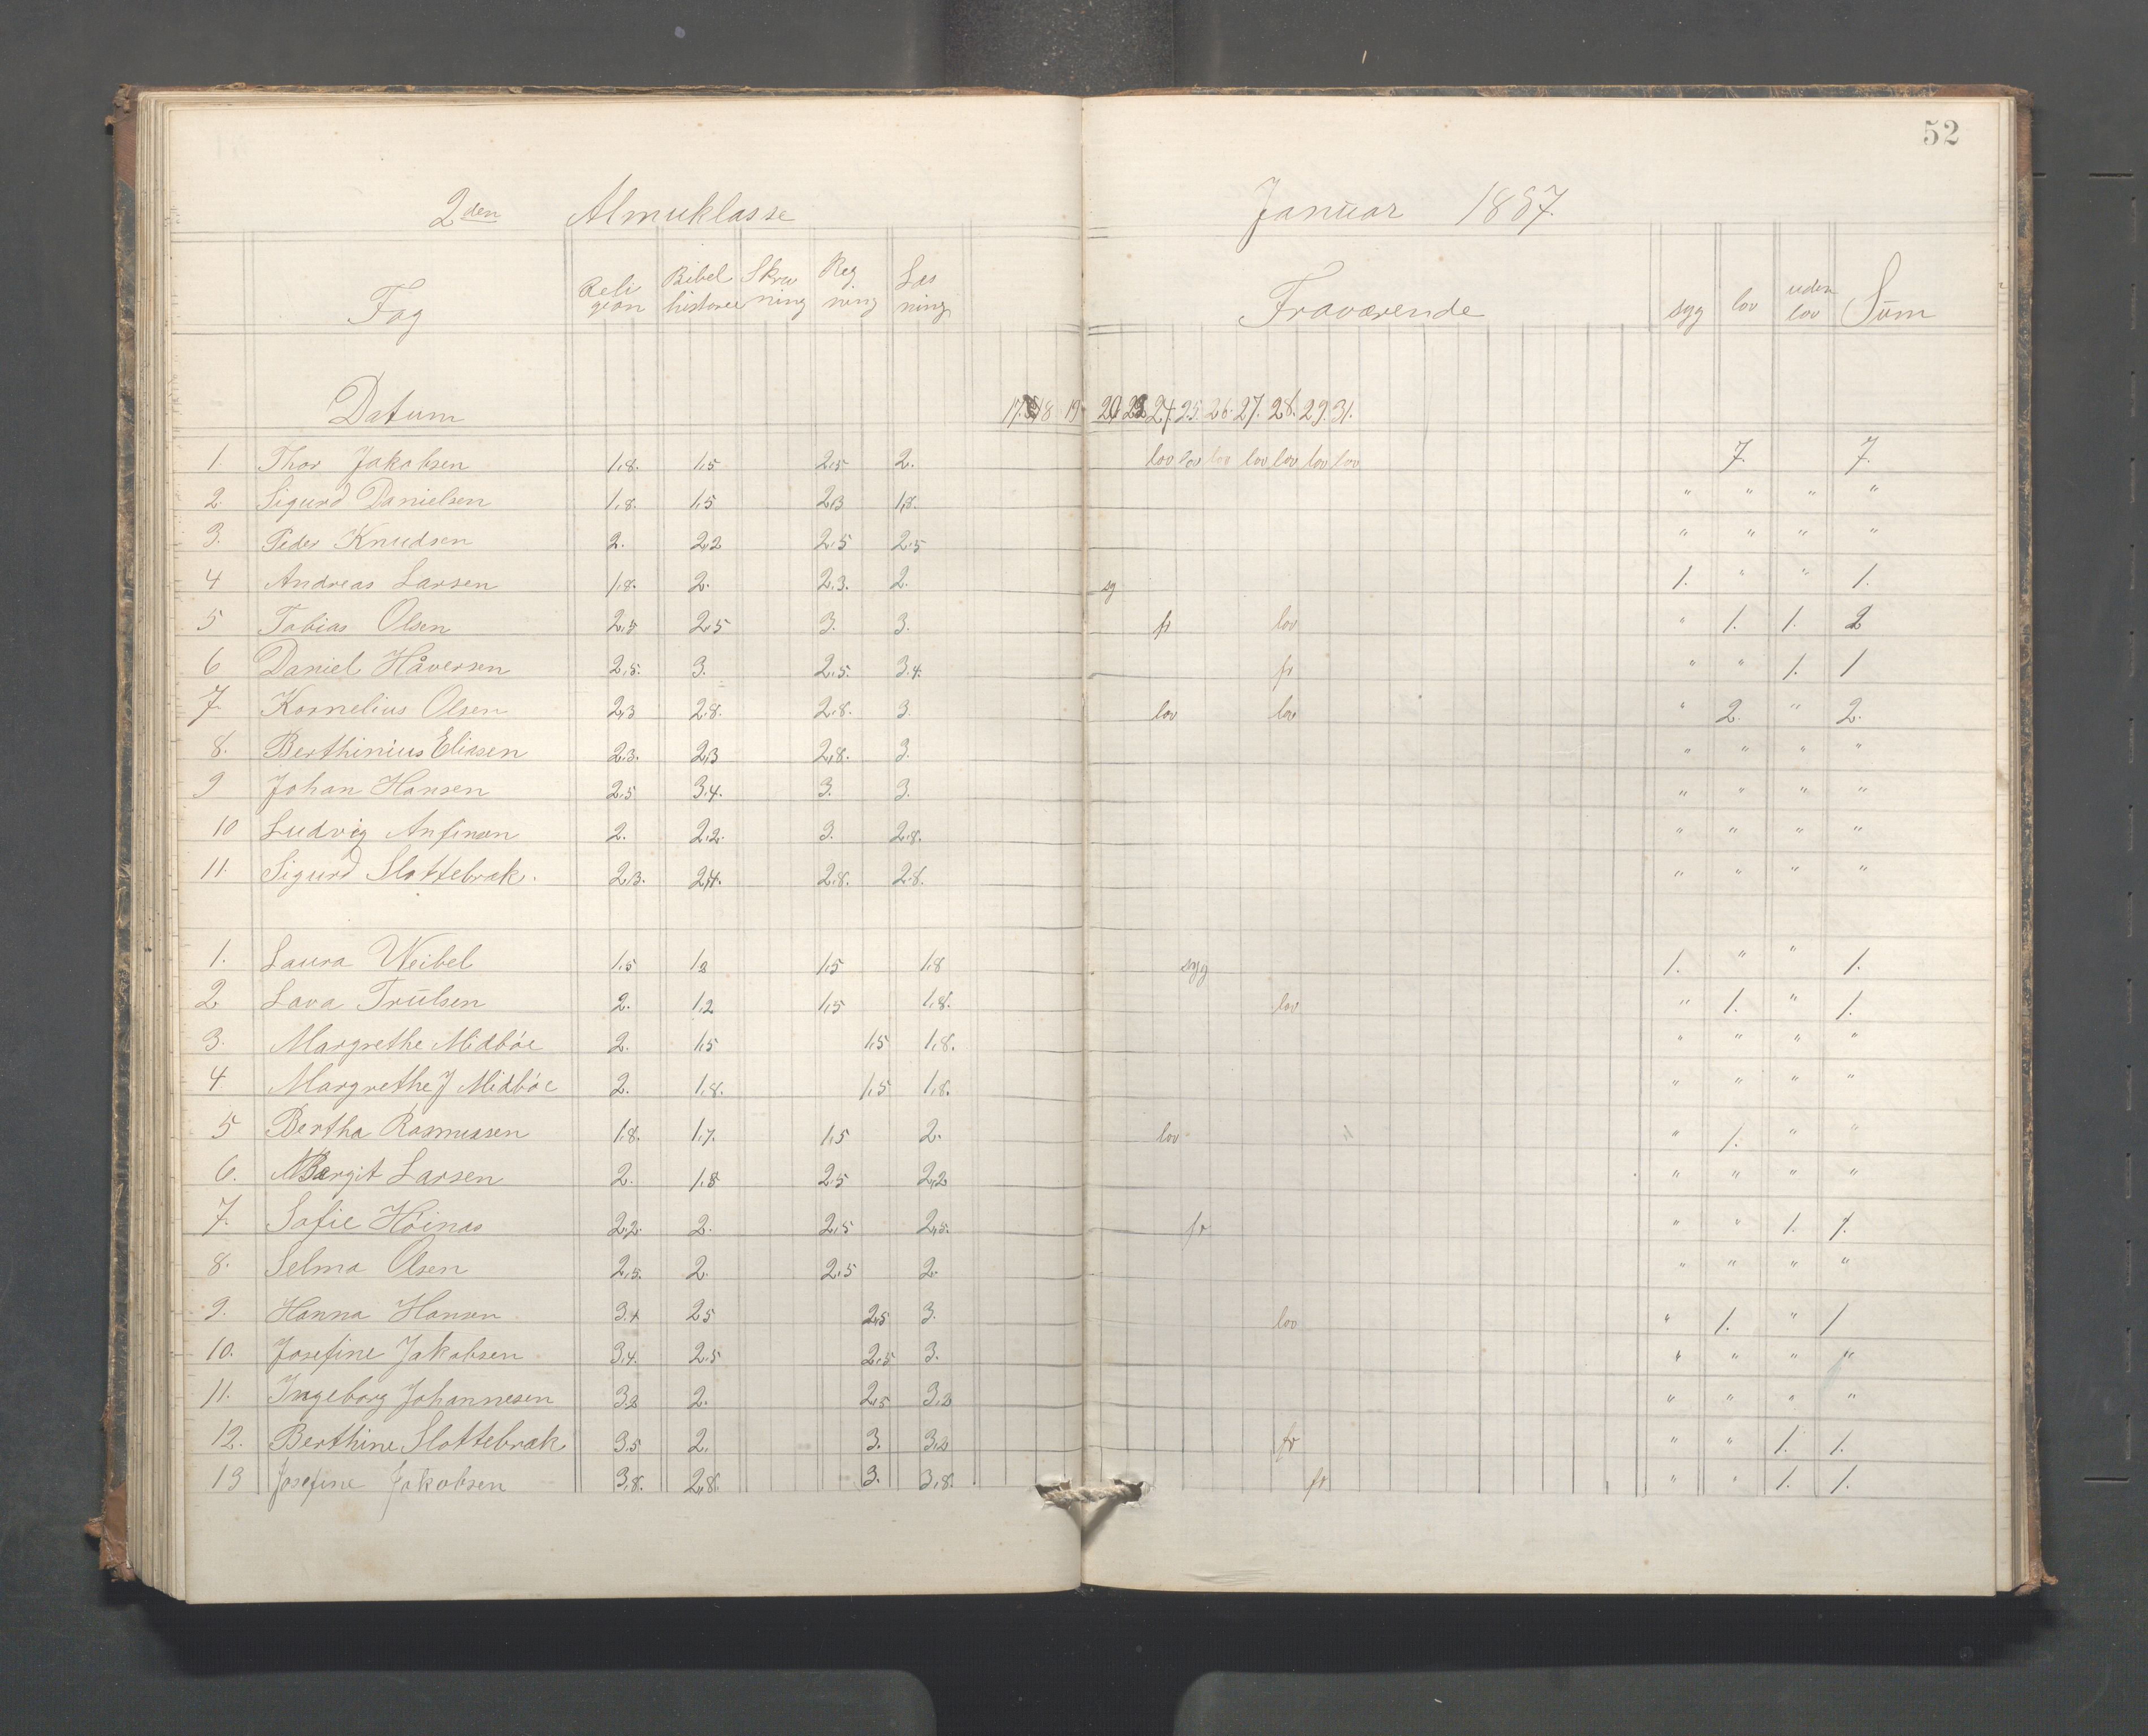 52
2den Almuklasse Januar 1887.
Fag Religion Bibelhistorie Skrivning Regning Læsning Fraværende syg lov uden lov Sum
Datum 17. 18 19 24. 25. 26. 27. 28. 29. 31.
1. Thor Jakobsen 1,8. 1,5 2,5 2. lov lov lov lov lov lov lov 7. 7.
2. Sigurd Danielsen 1,8. 1,5 2,3 1,8. " " " "
3. Peder Knudsen 2. 2,2 2,5 2,5 " " " "
4 Andreas Larsen 1,8. 2. 2,3. 2. sg 1. " " 1.
5 Tobias Olsen 2,5 3. 3. fr lov " 1. 1. 2
6 Daniel Håversen 2,5. 3. 2,5. 3.4. fr " " 1. 1
7. Kornelius Olsen 2,3 2,8. 2,8. 3. lov lov " 2. " 2.
8. Berthinius Eliasen 2,3. 2,3 2,8. 3. " " " "
9 Johan Hansen 2,5 3,4. 3. 3. " " " "
10 Ludvig Anfinsen 2. 2,2. 3. 2,8. " " " "
11. Sigurd Slottebrak. 2,3. 2,4. 2,8. 2,8. " " " "
1. Laura Weibel 1,5 1,2 1,5 1,8 syg 1. " " 1.
2 Lava Trulsen 2. 1,2 1,5 1,8. lov " 1. " 1.
3. Margrethe Midbóe 2. 1,5 1,5 1,8. " " " "
4 Margrethe J Midbóe 2. 1,8. 1,5 1,8. " " " "
5 Bertha Rasmussen 1,8. 1,7. 1,5 2. lov " 1. " "
6. Bergit Larsen 2. 1,8 2,5 2,2 " " " "
7. Sofie Hóinas 2,2. 2. 2,5 2,5. fr " " 1. 1.
8. Selma Olsen 2,5. 2. 2,5 2. " " " "
9. Hanna Hansen 3.4 2,5 2,5 3. lov " 1. " 1
10. Josefine Jakobsen 3,4. 2,5 2,5 3. " " " "
11. Ingeborg Johannesen 3,2 2. 2,5 3,2 " " " "
12. Berthine Slottebrak 3,5 2. 3. 3,2 fr " " 1. 1.
13 Josefine Jakobsen 3,8. 2,8. 3. 3,8. fr " " 1. 1.